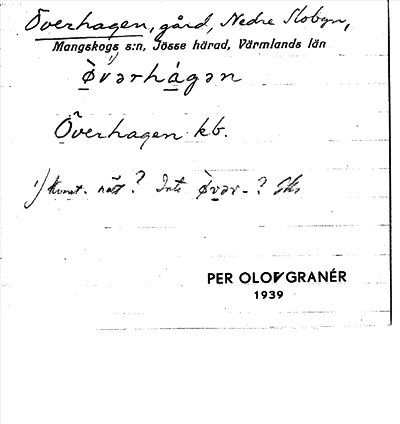 Överhagen, gård, Nedre Slobyn,
Mangskogs s:n, Jösse härad, Värmlands län
1)
ø̀vərhágən
Överhagen kb.
1) Konst. rätt? Inte ø̀vər-?
PER OLOV GRANÉR
1939